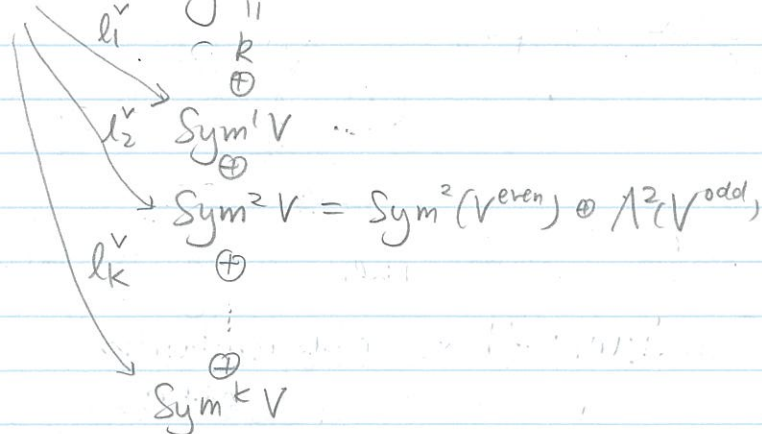 l₁^∨
k
⊕
l₂^∨ Sym¹V ..
⊕
Sym²V = Sym²(V^even) ⊕ Λ²(V^odd)
l_k^∨ ⊕
⋮
⊕
Sym^k V